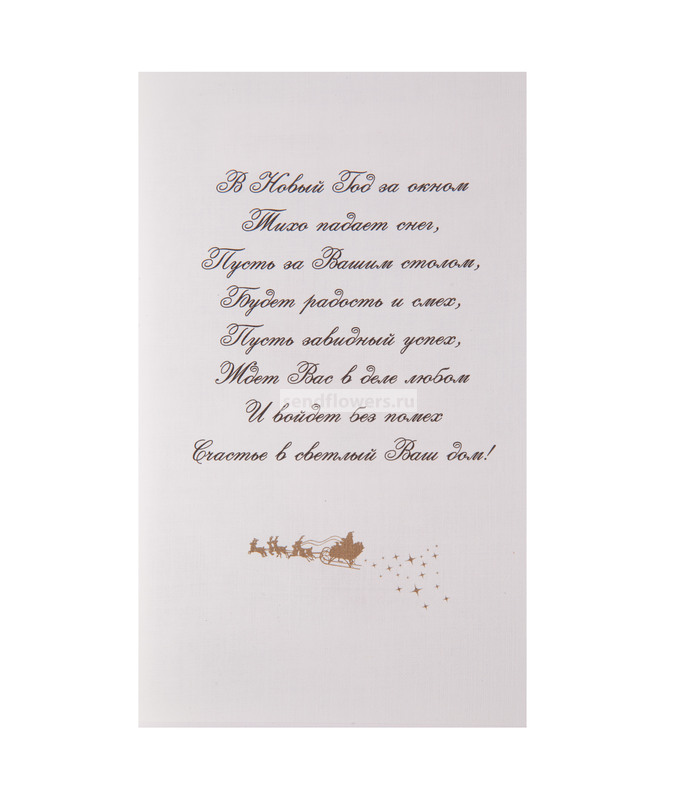 В Новый Год за окном
Тихо падает снег,
Пусть за Вашим столом,
Будет радость и смех,
Пусть завидный успех,
Ждет Вас в деле любом
sendflowers.ru
И войдет без помех
Счастье в светлый Ваш дом!